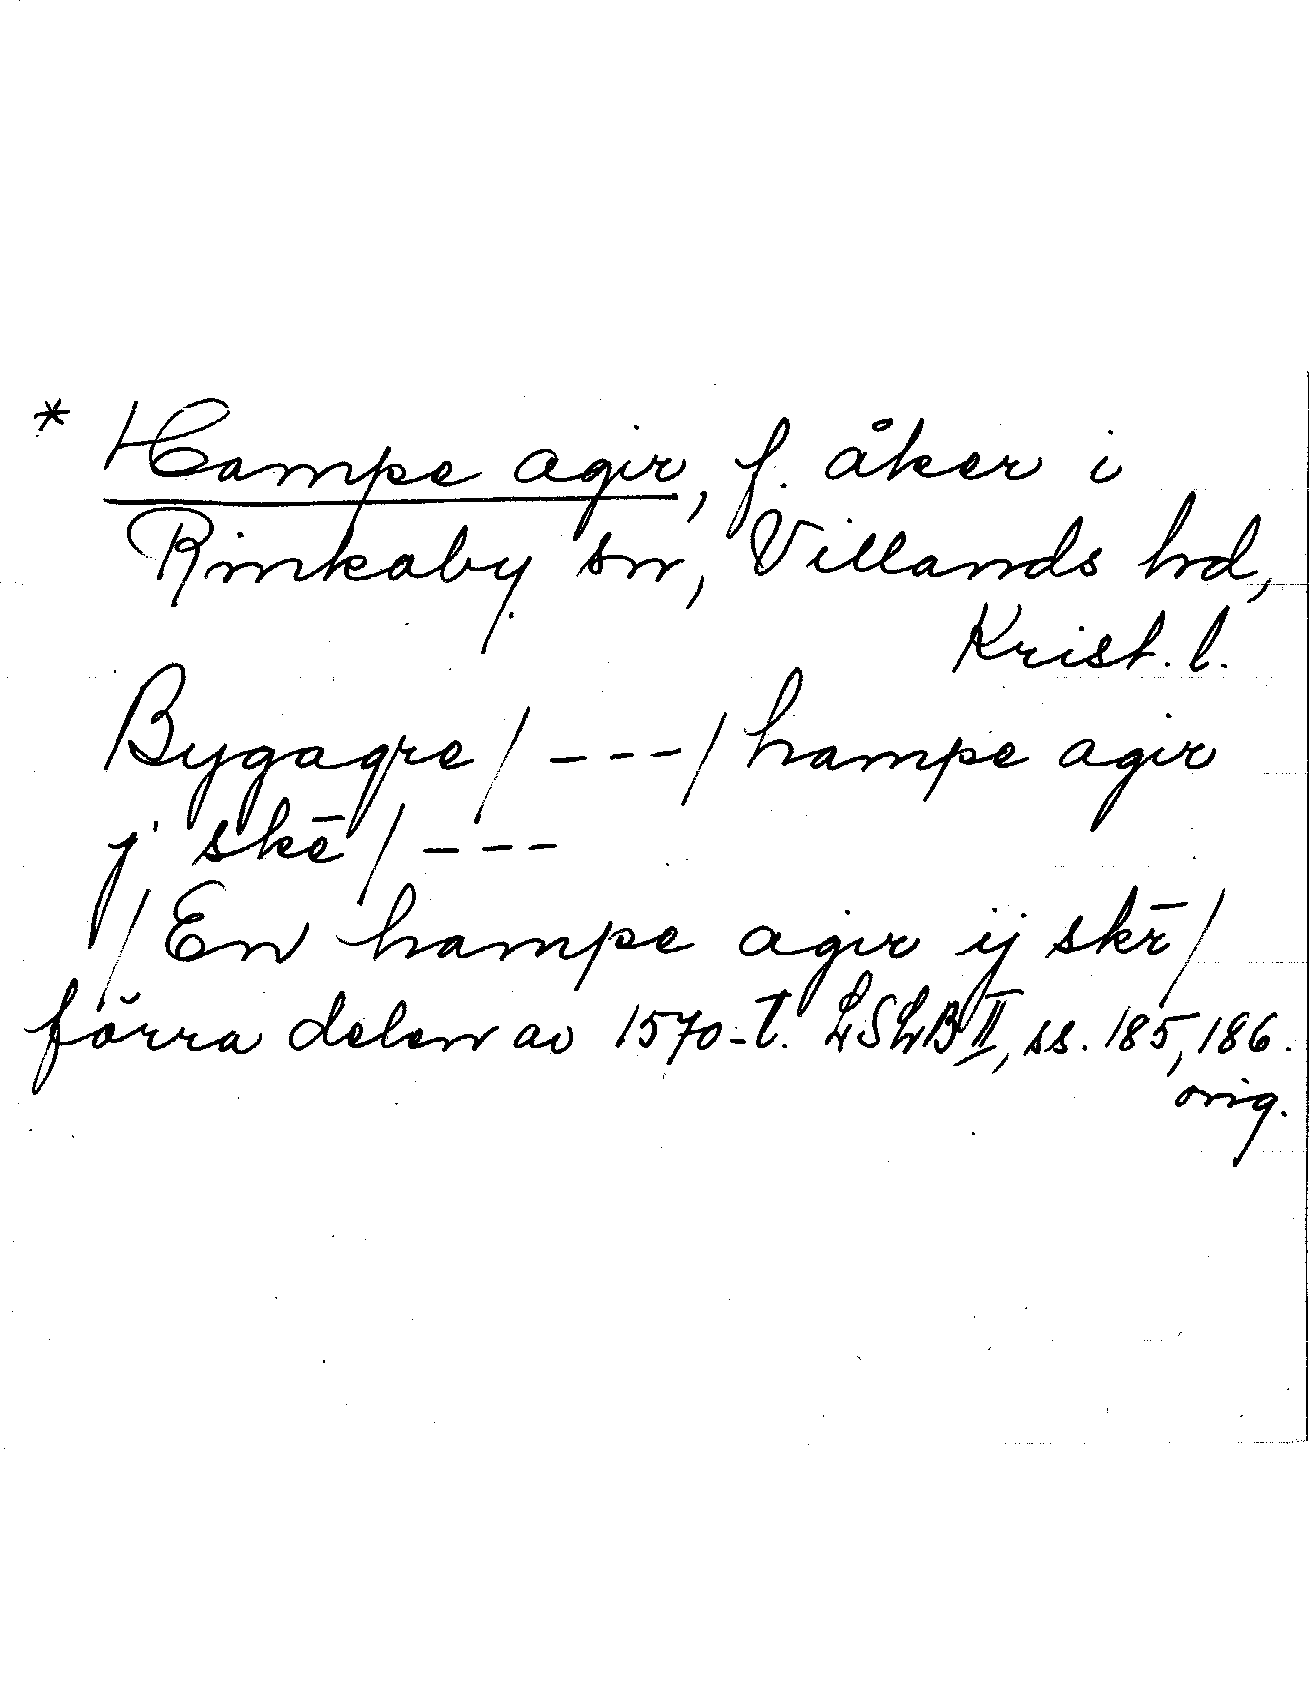 * Hampe agir, f. åker i
Rinkaby sn, Villands hd,
Krist. l.
Bygagre / - - - / hampe agir
j skē / - - -
/ En hampe agir ij skr̄ /
förra delen av 1570-t. LSLB II, ss. 185, 186.
orig.